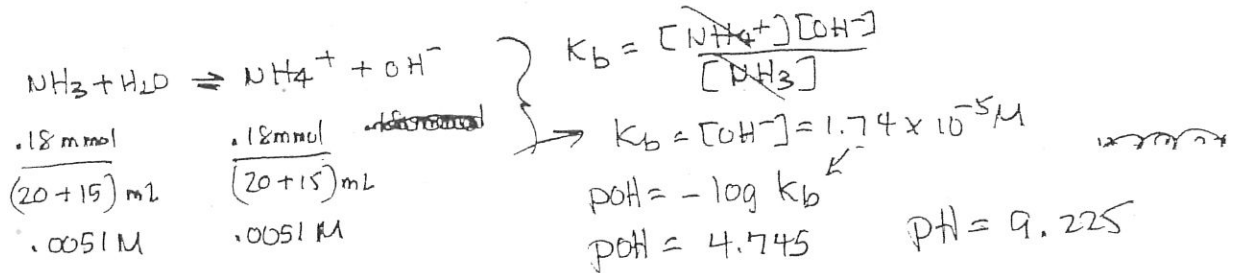 NH3 + H2O ⇌ NH4+ + OH-
.18 mmol / (20 + 15) mL    .18 mmol / (20 + 15) mL
.0051 M    .0051 M
Kb = [NH4+][OH-] / [NH3]
→ Kb = [OH-] = 1.74 x 10^-5 M
pOH = - log Kb
pOH = 4.745    pH = 9.225